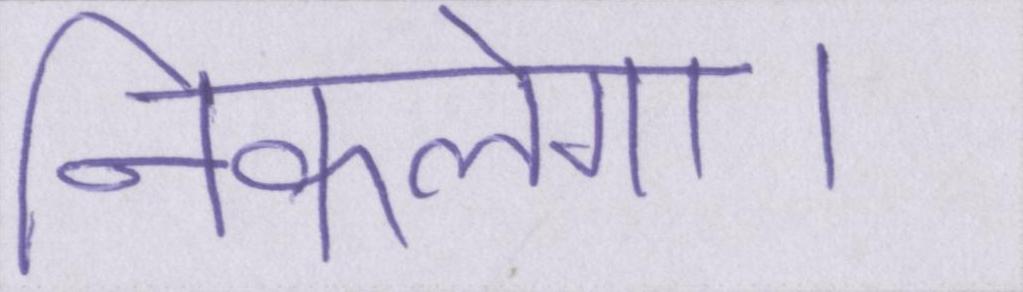 निकलेगा।